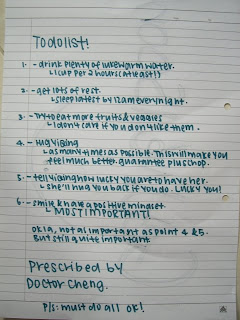 Todolist!
1. - drink plenty of lukewarm water.
↳ 1 cup per 2 hours (atleast!)
2. - get lots of rest.
↳ sleep latest by 12am every night.
3. - Try to eat more fruits & veggies
↳ I don't care if you don't like them.
4. - Hug Yiying
↳ as many times as possible. This will make you
feel much better. guarantee plus chop.
5. - tell Yiying how lucky you are to have her.
↳ she'll hug you back if you do. Lucky you!
6. - smile & have a positive mindset.
↳ MOST IMPORTANT!
okla, not al important as point 4 & 5.
But still quite important.
Prescribed by
Doctor Cheng.
P/s: must do all ok!